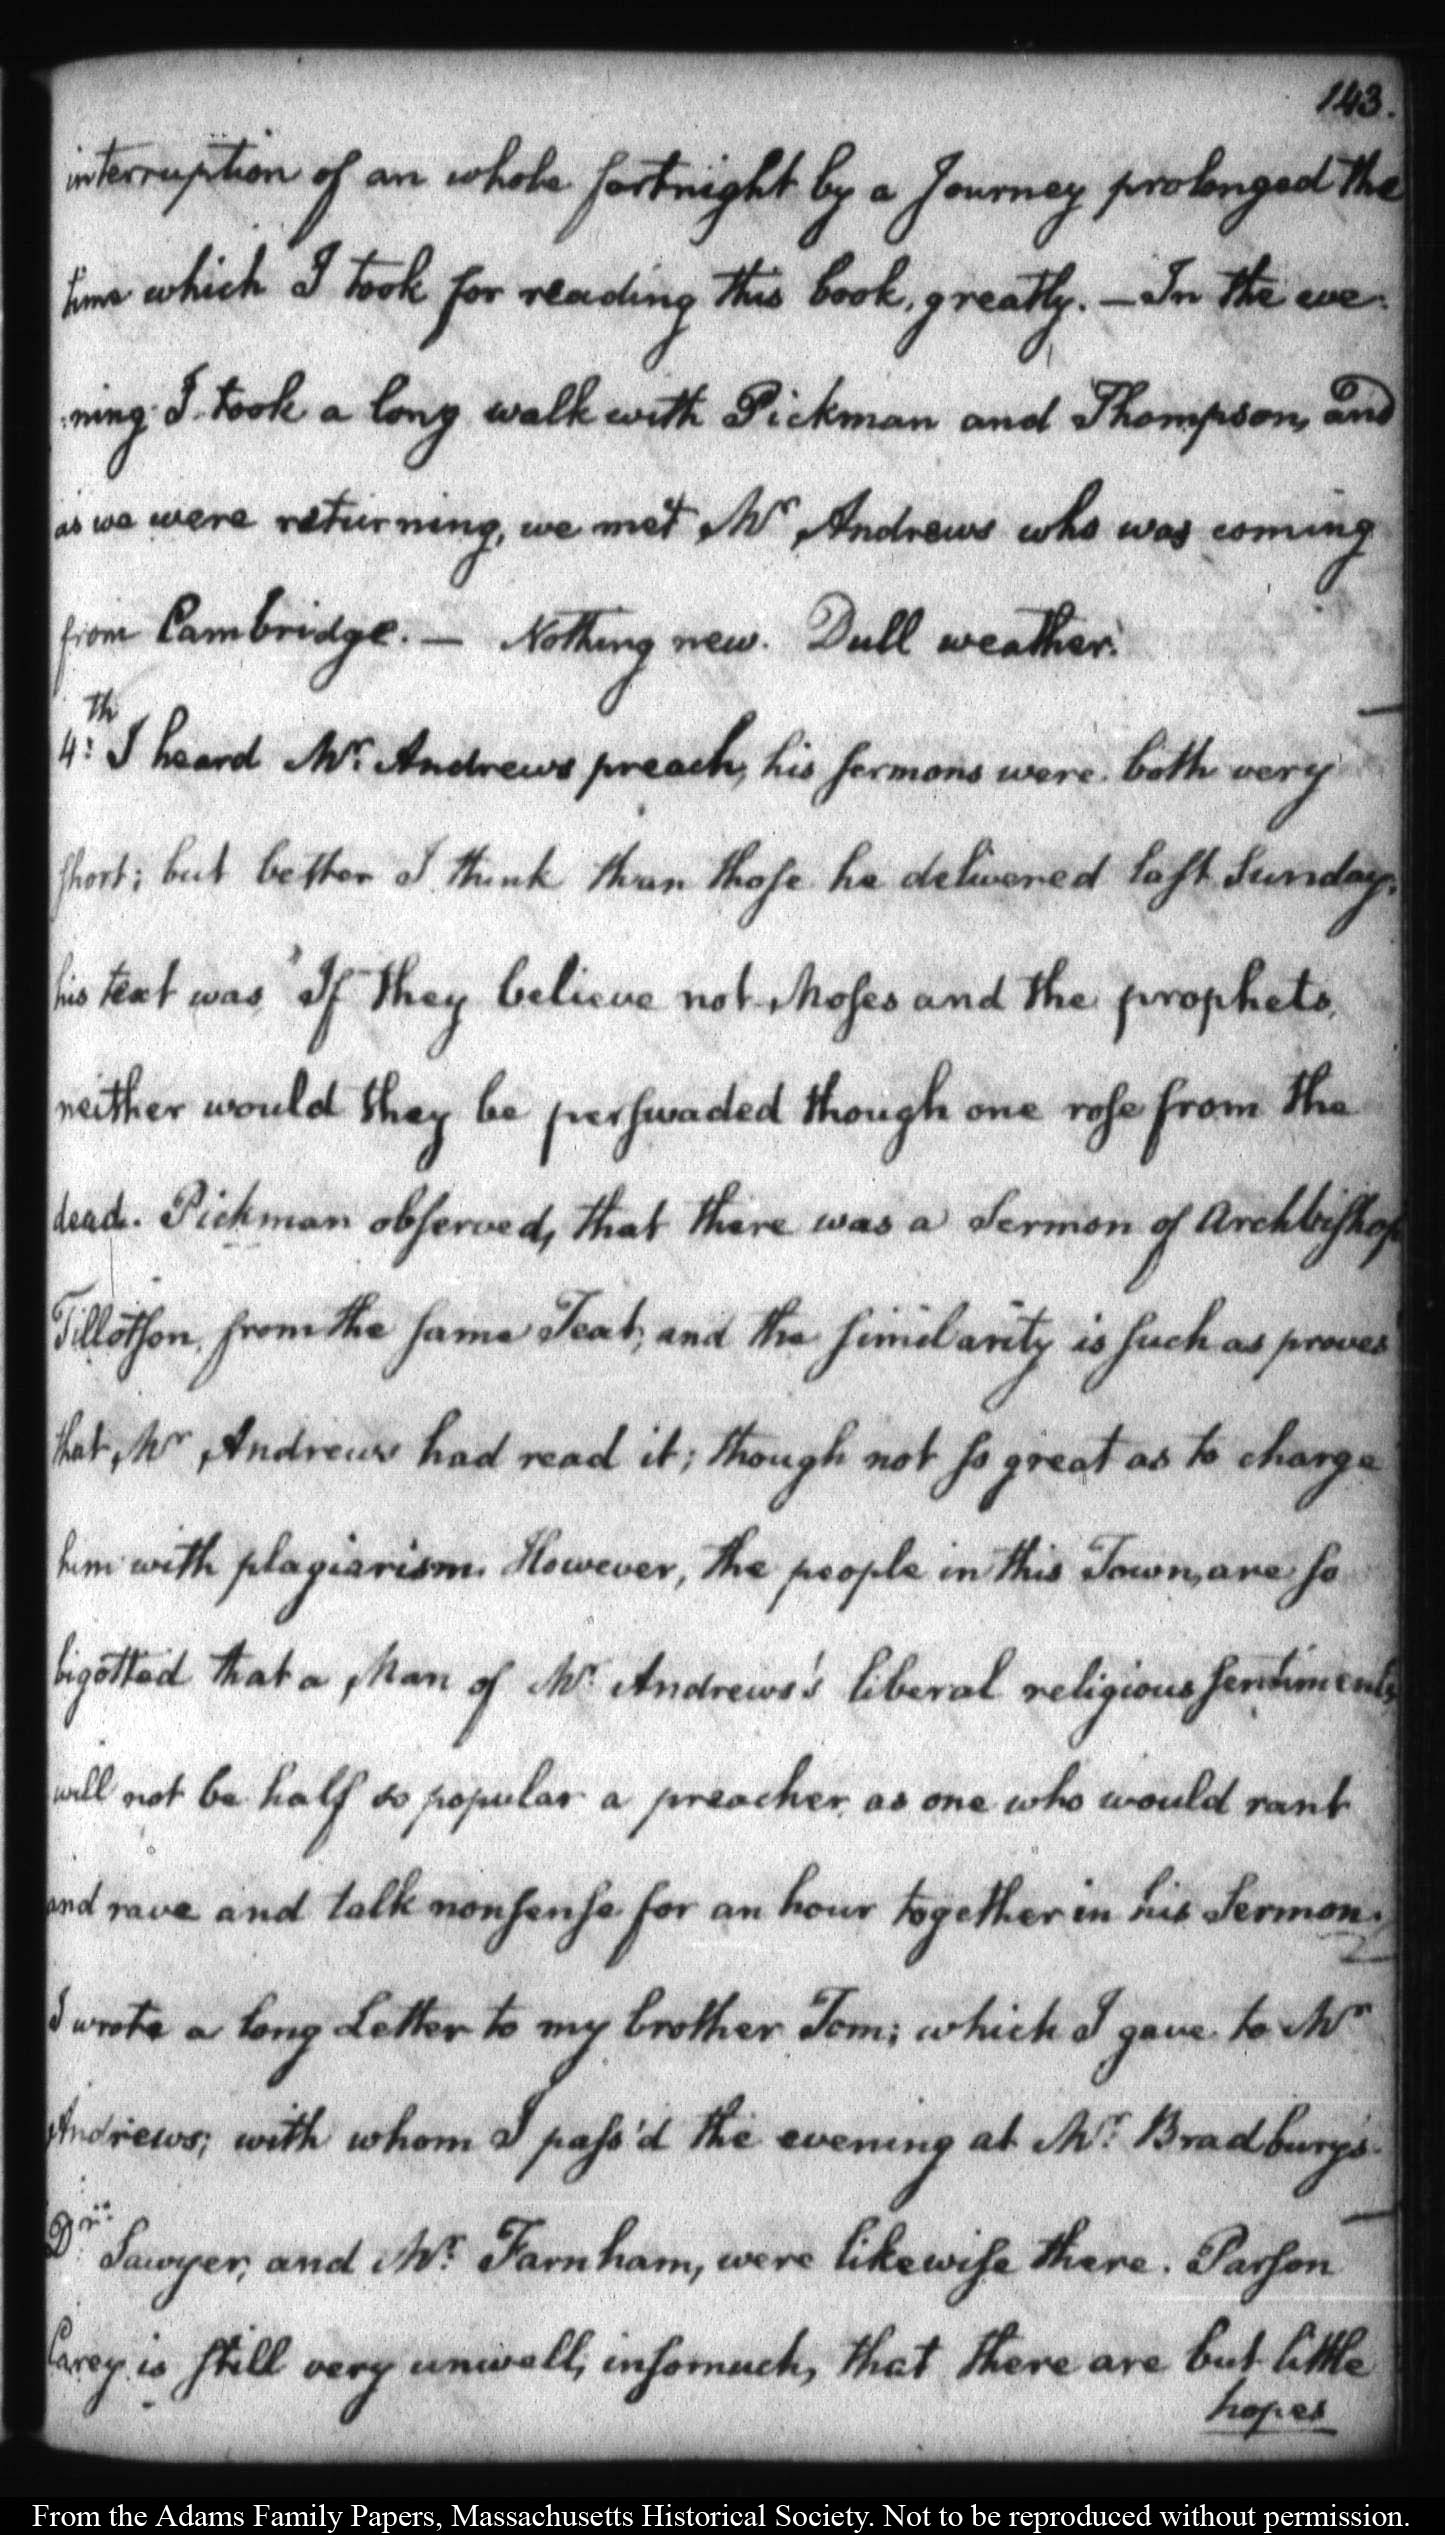 143.
interruption of an whole fortnight by a Journey prolonged the
time which I took for reading this book, greatly. — In the eve:
:ning I took a long walk with Pickman and Thompson, and
as we were returning, we met Mr Andrews who was coming
from Cambridge. — Nothing new. Dull weather.
4th: I heard Mr. Andrews preach, his sermons were both very
short; but better I think than those he delivered last Sunday.
his text was "If they believe not Moses and the prophets,
neither would they be perswaded though one rose from the
dead. Pickman observed, that there was a Sermon of Archbishop
Tillotson, from the same Text; and the similarity is such as proves
that Mr Andrews had read it; though not so great as to charge
him with plagiarism. However, the people in this Town, are so
bigotted that a Man of Mr. Andrews's liberal religious sentiments,
will not be half so popular a preacher as one who would rant
and rave and talk nonsense for an hour together in his Sermon.
I wrote a long Letter to my brother Tom; which I gave to Mr
Andrews; with whom I pass'd the evening at Mr. Bradbury's.
Dr: Sawyer, and Mr. Farnham, were likewise there. Parson
Carey is still very unwell, insomuch, that there are but little
hopes
From the Adams Family Papers, Massachusetts Historical Society. Not to be reproduced without permission.